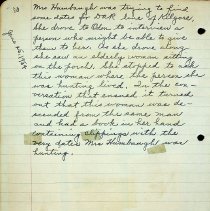 Mrs Humbaugh was trying to find
some dates for DAR line of Kilgore,
She drove to Odon to interview a
person who might be able to give
them to her. As she drove along
she saw an elderly woman sitting
on the porch. She stopped to ask
this woman where the person she
was hunting lived. In the con-
versation that ensued it turned
out that this woman was de-
scended from the same man
and had a book in her hand
containing clippings with the
very dates Mrs Humbaugh was
hunting
June